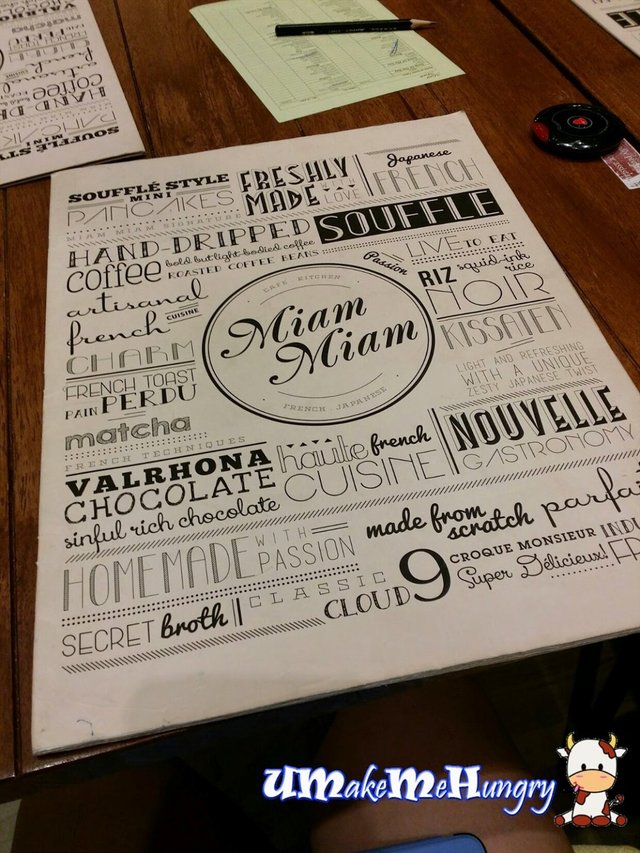 SOUFFLÉ STYLE
MINI
PANCAKES
MIAM MIAM SIGNATURE
FRESHLY
MADE
LOVE
Japanese
FRENCH
HAND-DRIPPED
SOUFFLE
coffee
bold but light-bodied coffee
ROASTED COFFEE BEANS
Passion
LIVE TO EAT
artisanal
french
CUISINE
RIZ squid-ink
rice
NOIR
CAFE KITCHEN
Miam
Miam
FRENCH . JAPANESE
CHARM
KISSATEN
FRENCH TOAST
PAIN PERDU
LIGHT AND REFRESHING
WITH A UNIQUE
ZESTY JAPANESE TWIST
matcha
FRENCH TECHNIQUES
VALRHONA
CHOCOLATE
sinful rich chocolate
haute french
CUISINE
NOUVELLE
GASTRONOMY
HOMEMADE WITH
PASSION
made from
scratch
parfai
SECRET broth
CLASSIC
CLOUD 9
CROQUE MONSIEUR
Super Délicieux!
UMakeMeHungry